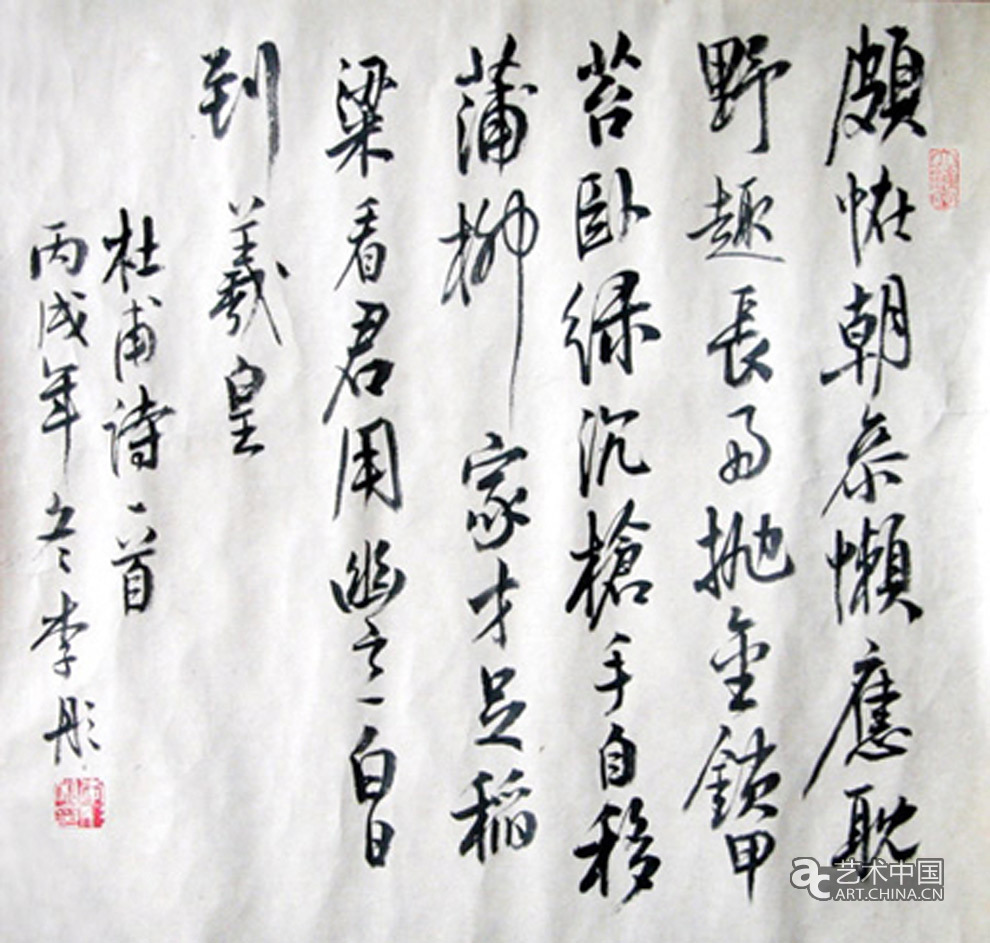 頗恠朝叅懶應耽
野趣長雨抛金鎖甲
苔卧緑沉槍手自移
蒲柳家才足稲
粱看君用幽意白日
到羲皇
杜甫詩一首
丙戌年冬李彤
艺术中国
ART.CHINA.CN